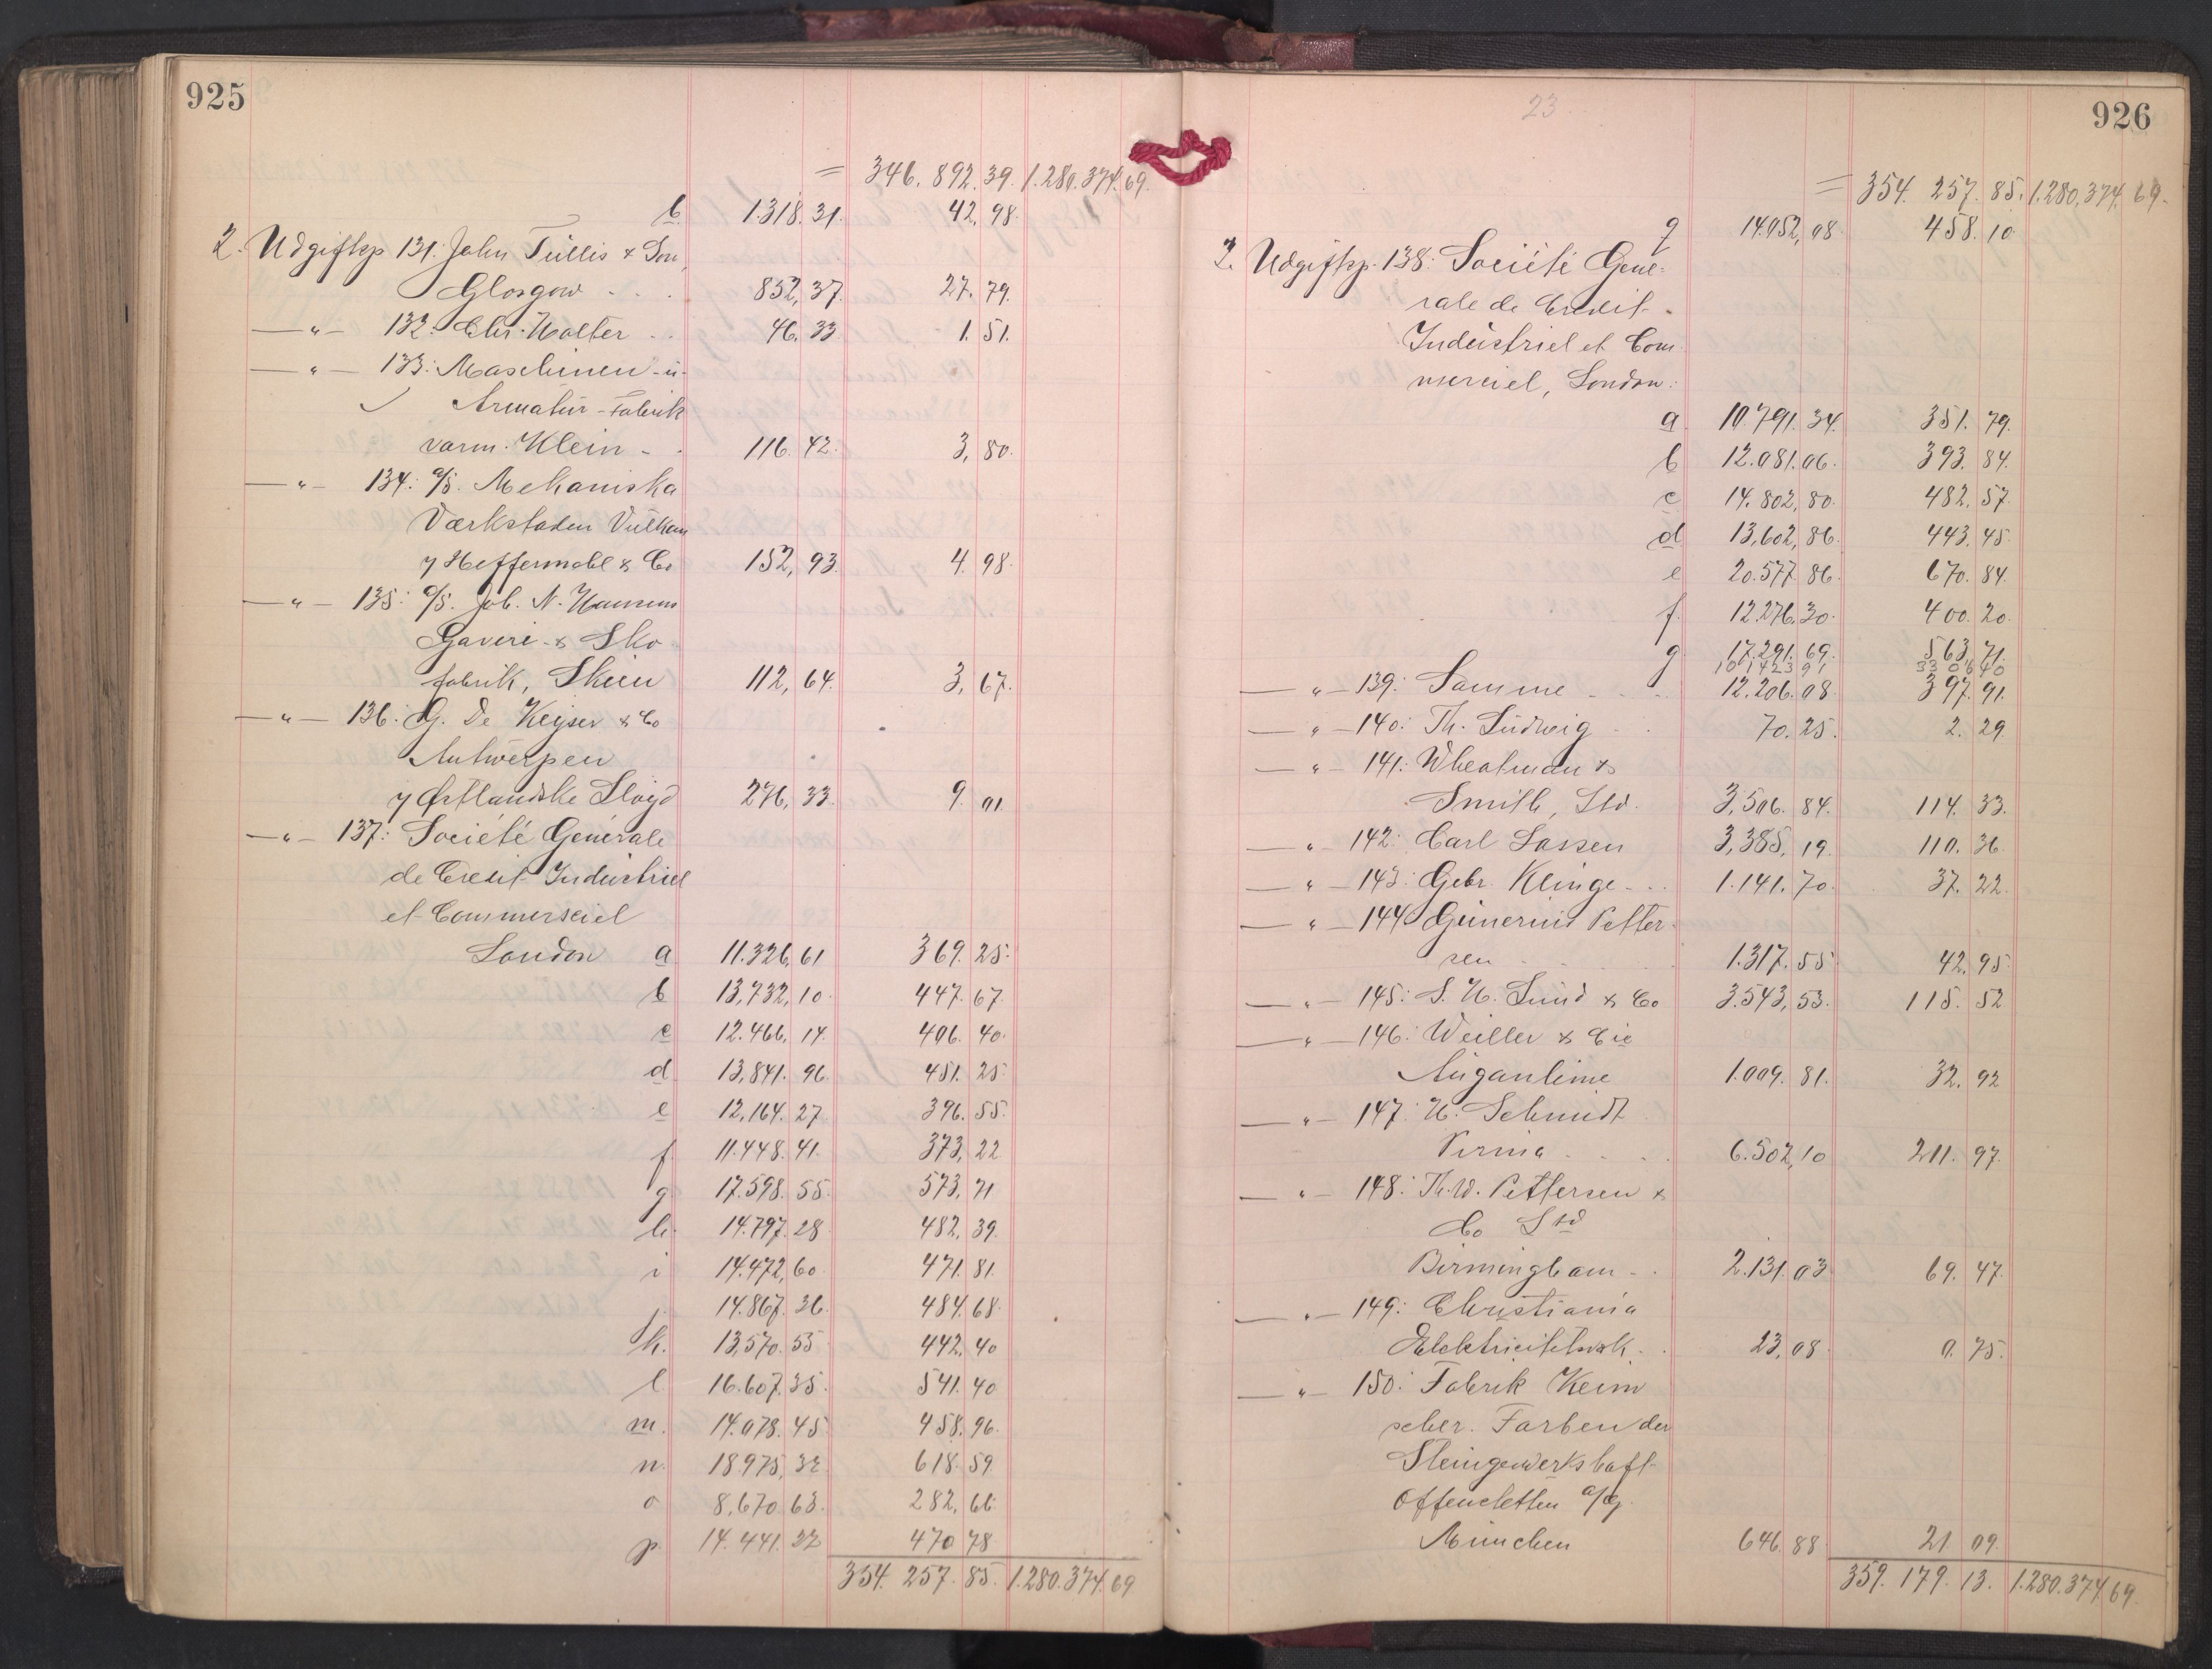 925
= 346. 892. 39. 1.280.374.69.
b 1.318. 31. 42. 98.
2. Udgiftsp 131: John Tullis & Son,
Glasgow . . . 852, 37. 27. 79.
—"— 132: Chr. Holter . . 46. 33 1. 51.
—"— 133: Maschinen- u-
Armatur-Fabrik
vorm. Klein - . 116. 42. 3, 80.
—"— 134: a/s. Mekaniska
Værkstaden Vulkan
y Heffermehl & Co 152, 93. 4. 98.
—"— 135: a/s. Joh. N. Hansens
Garveri- & Sko
fabrik, Skien 112, 64. 3, 67.
—"— 136: G. De Keyser & Co
Antwerpen
y Østlandske Lloyd 276, 33. 9. 01.
—"— 137: Société Générale
de Credit Industriel
et Commerciel
London a 11.326, 61 369. 25.
b 13,732, 10. 447. 67.
c 12.466, 14. 406. 40.
d 13,841. 96. 451. 25.
e 12,164. 27 396. 55.
f 11.448. 41. 373, 22.
g 17.598. 55. 573, 71
h. 14.797. 28 482, 39.
i 14.472, 60. 471. 81.
j. 14.867. 36. 484. 68.
k. 13,570. 55 442, 40
l 16.607. 35. 541. 40
m. 14.078. 45 458. 96.
n. 18.975, 32. 618. 59
o 8,670. 63. 282, 66.
p. 14.441. 22 470 78
354. 257. 85. 1.280.374.69
23.
926
= 354. 257. 85. 1.280,374. 69.
q 14.052, 08. 458. 10
2. Udgiftsp. 138: Société Gene-
rale de Credit .
Industriel et Com
merciel, London:
a 10.791. 34. 351. 79.
b 12.081. 06. 393. 84.
c 14.802, 80. 482. 57.
d 13,602, 86. 443. 45.
e 20.577. 86. 670. 84.
f. 12.276. 30. 400. 20.
g 17.291. 69. 563, 71.
101423 91 33 06 40
—"— 139: Samme . . . 12.206. 08. 397. 91.
—"— 140: Th. Ludwig . . 70. 25. 2. 29
—"— 141: Wheatman &
Smith, Ltd. 3,506. 84. 114. 33.
—"— 142: Carl Lassen 3,385, 19. 110. 36.
—"— 143: Gebr. Klinge . . . 1.141. 70. 37. 22.
—"— 144 Gunerius Petter-
sen . . . 1.317. 55 42. 95.
—"— 145: S. H. Lund & Co 3.543, 53. 115. 52
—"— 146: Weiller & Cie
1.009. 81. 32. 92
—"— 147: H. Schmidt
Pirna . . . . 6.502, 10 211. 97.
—"— 148: Th. W. Pettersen &
Co Ltd
Birmingham - . 2.131. 03 69. 47.
—"— 149: Christiania
Elektricitetsvrk. . 23, 08. 0. 75.
—"— 150: Fabrik Keim
scher. Farben der
Steingewerkshaft
Offenstetten a/g.
München 646. 88 21. 09.
359. 179. 13. 1.280.374.69.